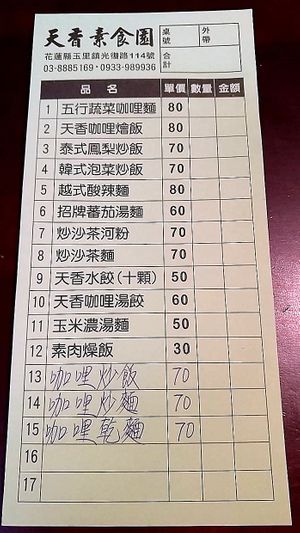 天香素食園
花蓮縣玉里鎮光復路114號
03-8885169·0933-989936
桌號
外帶
合計
品名 單價 數量 金額
1 五行蔬菜咖哩麵 80
2 天香咖哩燴飯 80
3 泰式鳳梨炒飯 70
4 韓式泡菜炒飯 70
5 越式酸辣麵 80
6 招牌蕃茄湯麵 60
7 炒沙茶河粉 70
8 炒沙茶麵 70
9 天香水餃(十顆) 50
10 天香咖哩湯餃 60
11 玉米濃湯麵 50
12 素肉燥飯 30
13 咖哩炒飯 70
14 咖哩炒麵 70
15 咖哩乾麵 70
16
17